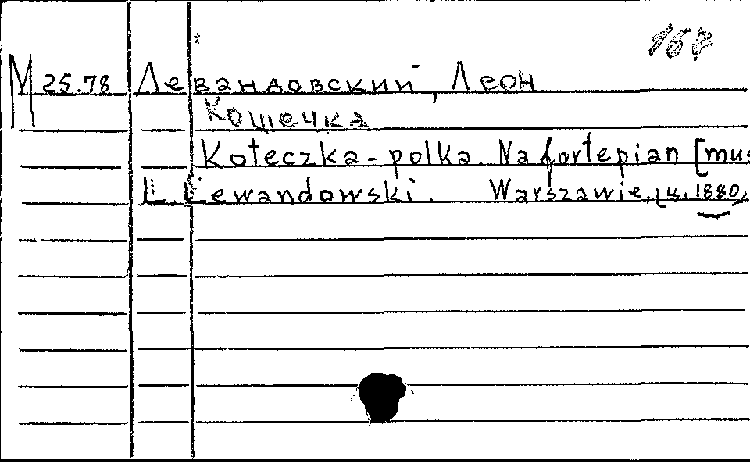 167
М 25.78 Левандовский, Леон
Кошечка
Koteczka-polka. Na fortepian [mus
L. Lewandowski. Warszawie, [4. 1880,